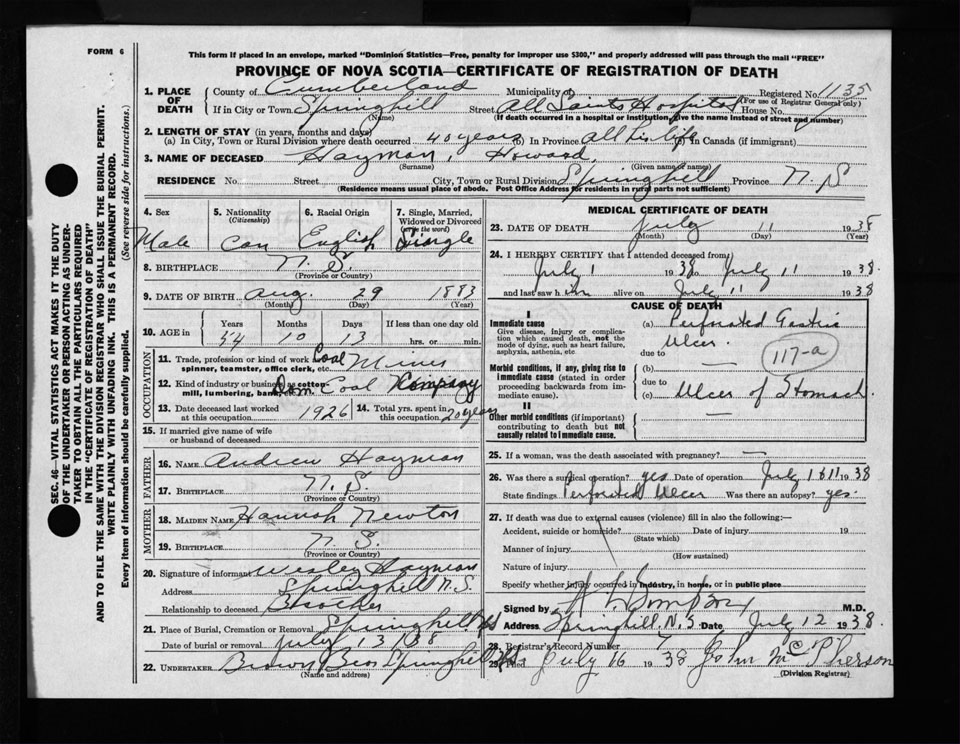 FORM 6
This form if placed in an envelope, marked "Dominion Statistics—Free, penalty for improper use $300," and properly addressed will pass through the mail "FREE"
PROVINCE OF NOVA SCOTIA—CERTIFICATE OF REGISTRATION OF DEATH
SEC. 46—VITAL STATISTICS ACT MAKES IT THE DUTY
OF THE UNDERTAKER OR PERSON ACTING AS UNDER-
TAKER TO OBTAIN ALL THE PARTICULARS REQUIRED
IN THE "CERTIFICATE OF REGISTRATION OF DEATH"
AND TO FILE THE SAME WITH THE DIVISION REGISTRAR WHO SHALL ISSUE THE BURIAL PERMIT.
WRITE PLAINLY WITH UNFADING INK. THIS IS A PERMANENT RECORD.
Every item of information should be carefully supplied. (See reverse side for instructions.)
1. PLACE OF DEATH County of Cumberland Municipality of Registered No. 1135
(For use of Registrar General only)
If in City or Town Springhill Street All Saints Hospital House No.
(Name) (If death occurred in a hospital or institution, give the name instead of street and number)
2. LENGTH OF STAY (in years, months and days)
(a) In City, Town or Rural Division where death occurred 40 years (b) In Province all his life (c) In Canada (if immigrant)
3. NAME OF DECEASED Hayman, Howard,
(Surname) (Given name or names)
RESIDENCE No. Street City, Town or Rural Division Springhill Province N. S
(Residence means usual place of abode. Post Office Address for residents in rural parts not sufficient)
4. Sex 5. Nationality (Citizenship) 6. Racial Origin 7. Single, Married, Widowed or Divorced (write the word)
Male Can English Single
8. BIRTHPLACE N. S.
(Province or Country)
9. DATE OF BIRTH Aug. 29 1883
(Month) (Day) (Year)
10. AGE in Years Months Days If less than one day old
54 10 13 hrs. or min.
OCCUPATION
11. Trade, profession or kind of work as Coal Miner
spinner, teamster, office clerk, etc.
12. Kind of industry or business as cotton- Dom. Coal Company
mill, lumbering, bank,
13. Date deceased last worked at this occupation 1926 14. Total yrs. spent in this occupation 20 years
15. If married give name of wife
or husband of deceased
FATHER
16. NAME Andrew Hayman
17. BIRTHPLACE N. S.
(Province or Country)
MOTHER
18. MAIDEN NAME Hannah Newton
19. BIRTHPLACE N. S.
(Province or Country)
20. Signature of informant Wesley Hayman
Address Springhill N.S.
Relationship to deceased Brother
21. Place of Burial, Cremation or Removal Springhill NS
Date of burial or removal July 13/38
22. UNDERTAKER Brown Bros Springhill NS.
(Name and address)
MEDICAL CERTIFICATE OF DEATH
23. DATE OF DEATH July 11 1938
(Month) (Day) (Year)
24. I HEREBY CERTIFY that I attended deceased from
July 1 1938 to July 11 1938.
and last saw him alive on July 11 1938
CAUSE OF DEATH
I
Immediate cause (a) Perforated Gastric
Give disease, injury or complication which caused death, not the mode of dying, such as heart failure, asphyxia, asthenia, etc Ulcer.
due to
117-a
Morbid conditions, if any, giving rise to immediate cause (stated in order proceeding backwards from immediate cause). (b) —
due to
(c) Ulcer of Stomach
II
Other morbid conditions (if important) contributing to death but not causally related to immediate cause.
25. If a woman, was the death associated with pregnancy? —
26. Was there a surgical operation? yes Date of operation July 1 & 11 1938
State findings Perforated Ulcer Was there an autopsy? yes.
27. If death was due to external causes (violence) fill in also the following:—
Accident, suicide or homicide? Date of injury 19
(State which)
Manner of injury
(How sustained)
Nature of injury
Specify whether injury occurred in industry, in home, or in public place
Signed by M.D.
Address Springhill, N.S Date July 12 1938.
28. Registrar's Record Number 7
29. Filed July 16 1938 John McPherson
(Division Registrar)